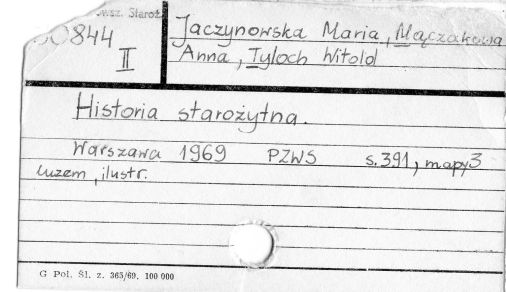 owsz. Staroż.
50844
II
Jaczynowska Maria, Mączakowa
Anna, Tyloch Witold
Historia starożytna.
Warszawa 1969 PZWS s. 391, mapy 3
luzem, ilustr.
G Pol. Śl. z. 363/69. 100 000